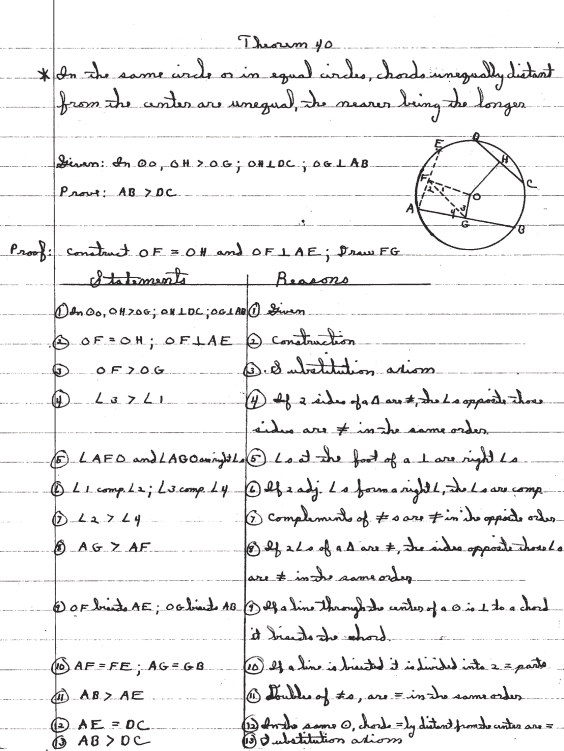 Theorem 40
* In the same circle or in equal circles, chords unequally distant
from the center are unequal, the nearer being the longer
Given: In ⊙O, OH > OG; OH⊥DC; OG⊥AB
Prove: AB > DC
E
D
H
F
C
O
A
G
B
1
2
3
4
Proof: Construct OF = OH and OF⊥AE; Draw FG
Statements Reasons
① In ⊙O, OH>OG; OH⊥DC; OG⊥AB ① Given
② OF = OH; OF⊥AE ② Construction
③ OF > OG ③ Substitution axiom
④ ∠3 > ∠1 ④ If 2 sides of a Δ are ≠, the ∠s opposite those
sides are ≠ in the same order
⑤ ∠AFO and ∠AGO are right ∠s ⑤ ∠s at the foot of a ⊥ are right ∠s
⑥ ∠1 comp ∠2; ∠3 comp ∠4 ⑥ If 2 adj. ∠s form a right ∠, the ∠s are comp
⑦ ∠2 > ∠4 ⑦ Complements of ≠s are ≠ in the opposite order
⑧ AG > AF ⑧ If 2 ∠s of a Δ are ≠, the sides opposite those ∠s
are ≠ in the same order
⑨ OF bisects AE; OG bisects AB ⑨ If a line through the center of a ⊙ is ⊥ to a chord
it bisects the chord.
⑩ AF = FE; AG = GB ⑩ If a line is bisected it is divided into 2 = parts
⑪ AB > AE ⑪ Doubles of ≠s, are = in the same order
⑫ AE = DC ⑫ In the same ⊙, chords =ly distant from the center are =
⑬ AB > DC ⑬ Substitution axiom